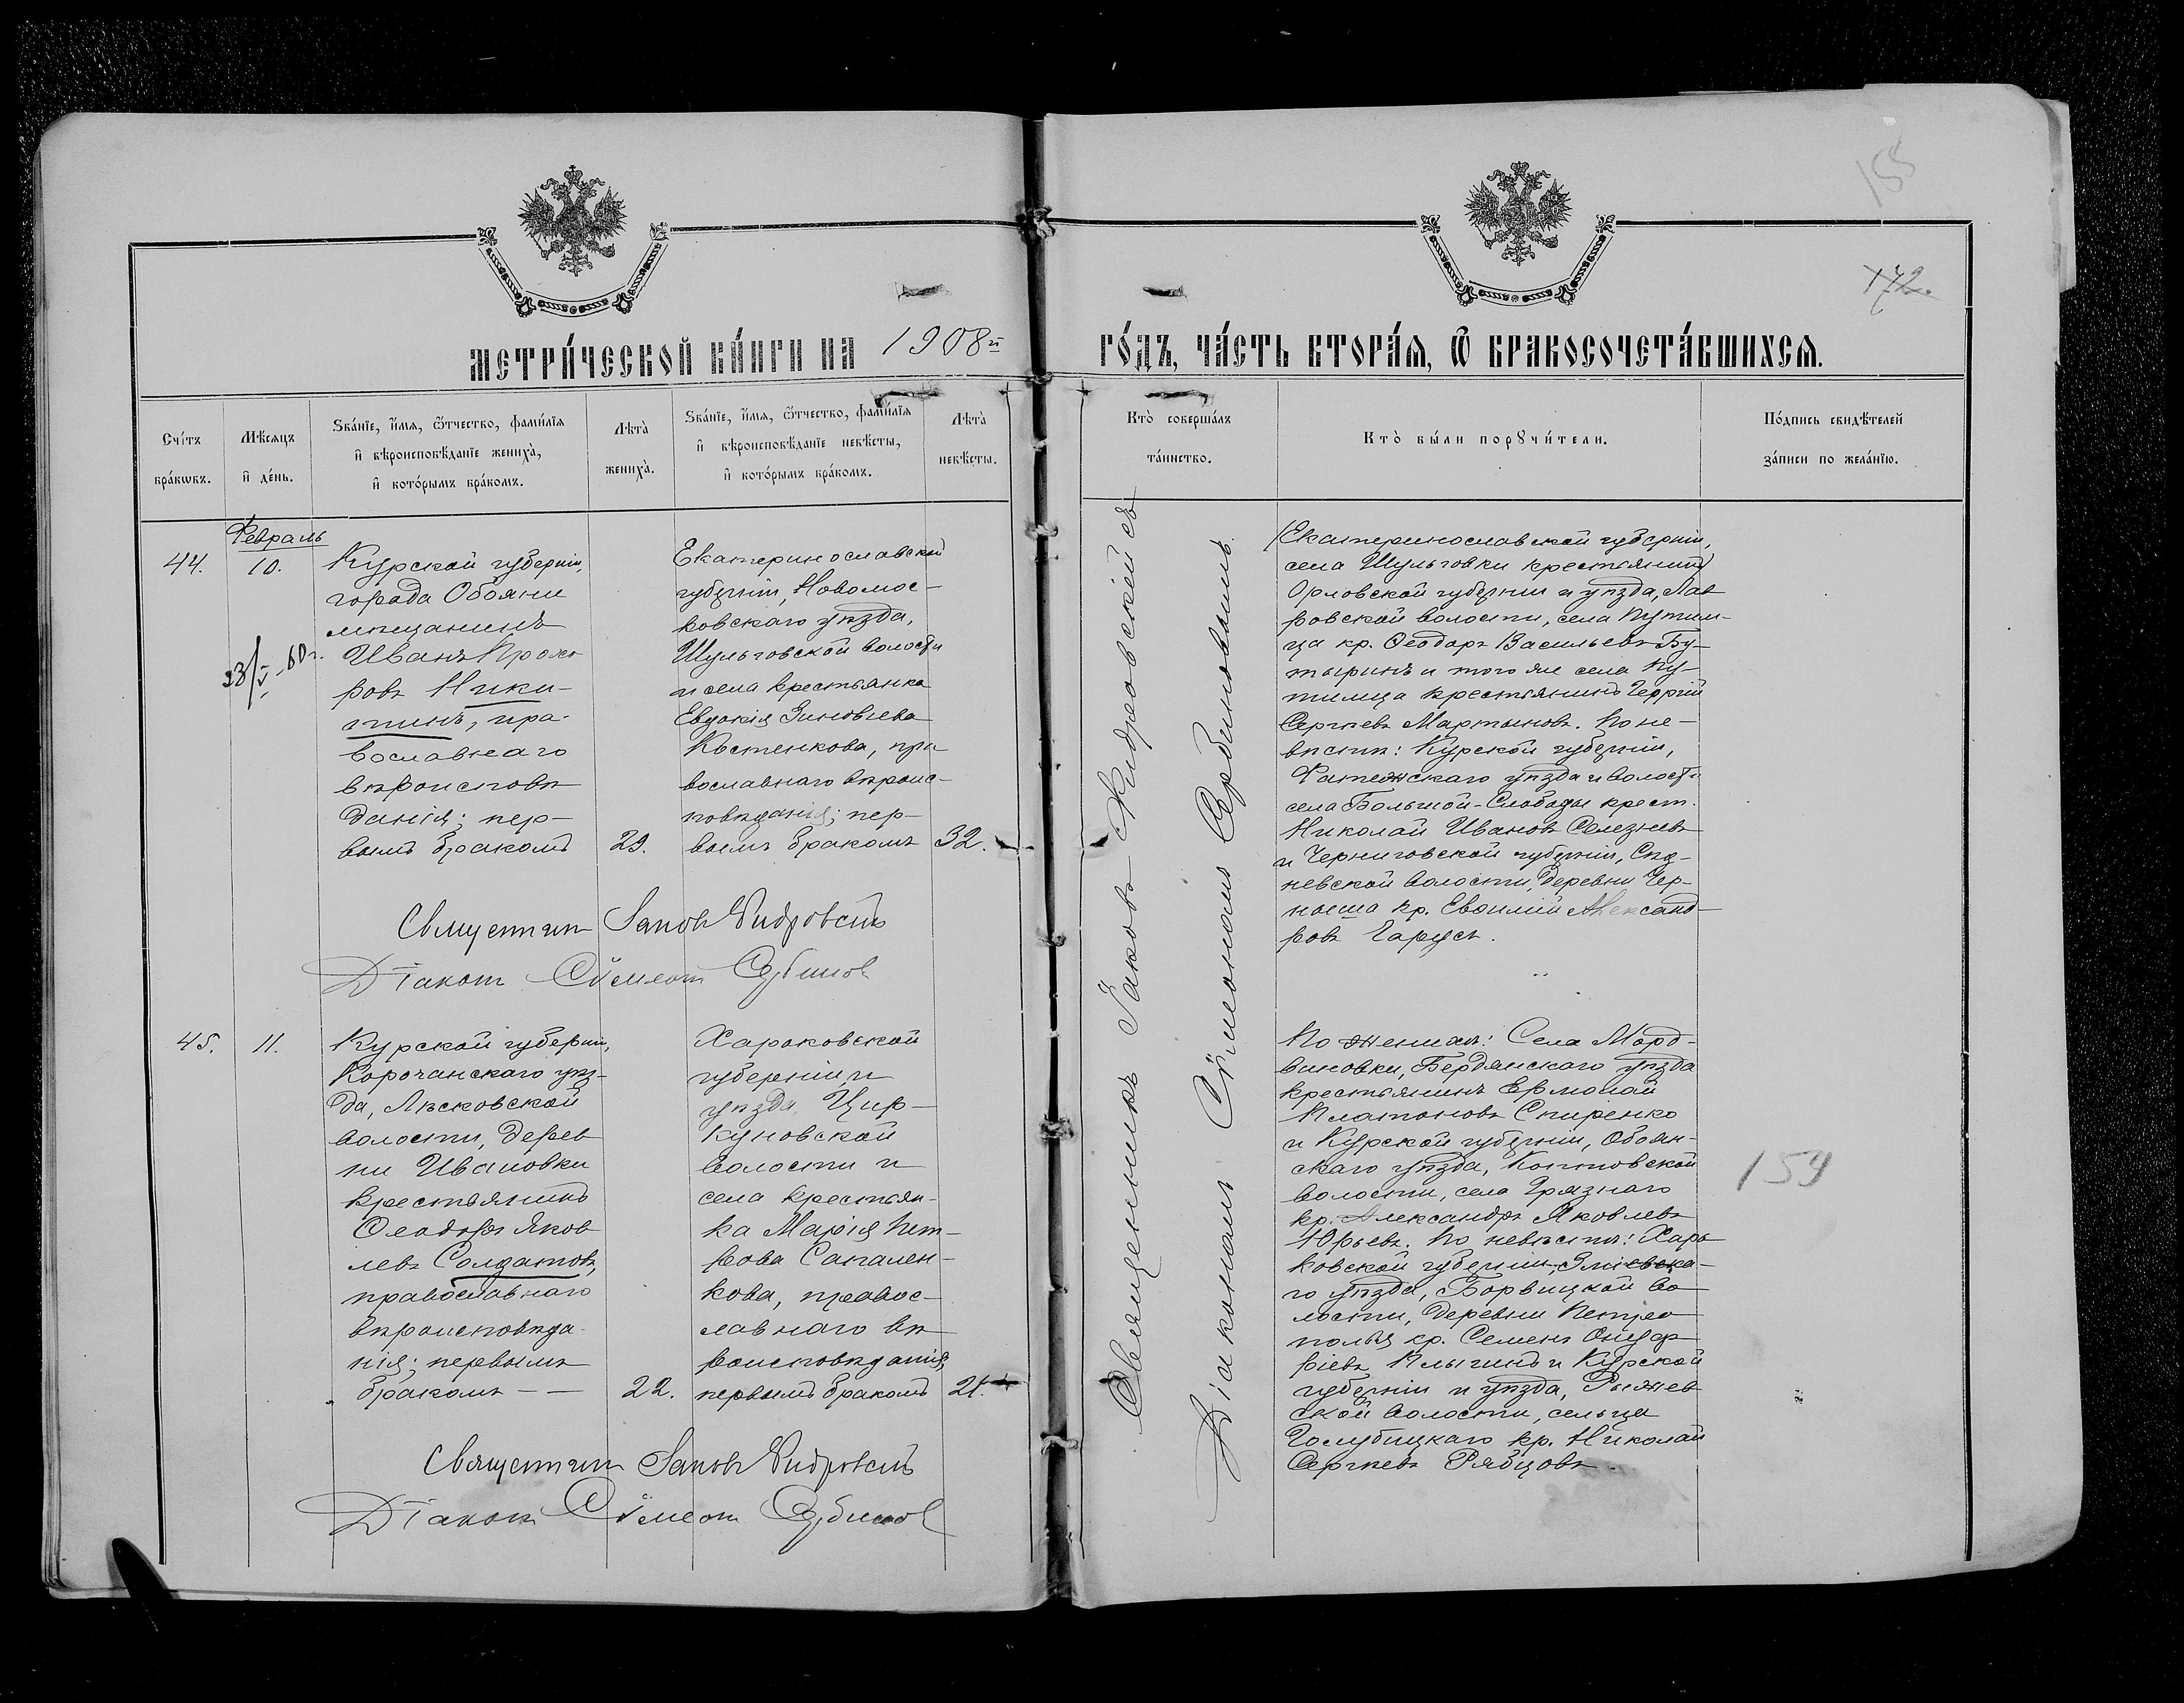 155
172.
МЕТРИ́ЧЕСКОЙ КНИ́ГИ НА 1908й ГО́ДЪ, ЧА́СТЬ ВТОРА́Я, Ѿ БРАКОСОЧЕТА́ВШИХСЯ.
Сче́тъ бра́кѡвъ.
Мѣ́сяцъ и҆ де́нь.
Ѕва́нїе, и҆́мя, ѻ҆́тчество, фами́лїя
и҆ вѣроисповѣ́данїе жениха̀,
и҆ кото́рымъ бра́комъ.
Лѣта̀ жениха̀.
Ѕва́нїе, и҆́мя, ѻ҆́тчество, фами́лїя
и҆ вѣроисповѣ́данїе невѣ́сты,
и҆ кото́рымъ бра́комъ.
Лѣта̀ невѣ́сты.
Кто̀ соверша́лъ та́инство.
Кто̀ бы́ли порꙋчи́тели.
По́дпись свидѣ́телей
за́писи по жела́нїю.
Февраль
44.
10.
Курской губерніи,
города Обояни
мѣщанинъ
Иванъ Прохо
ровъ Ники-
тинъ, пра-
вославнаго
вѣроисповѣ
данія; пер-
вымъ бракомъ
29.
Екатеринославской
губерніи, Новомос-
ковскаго уѣзда,
Шульговской волости
и села крестьянка
Евдокія Зиновьева
Костенкова, пра
вославнаго вѣроис-
повѣданія; пер-
вымъ бракомъ
32.
Священникъ Іаковъ Кидровскій
Діаконъ Сѵмеонъ Сербиновъ
Священникъ Іаковъ Кидровскій съ
Діакономъ Сѵмеономъ Сербиновымъ.
(Екатеринославской губерніи,
села Шульговки крестьянинъ)
Орловской губерніи и уѣзда, Лав
ровской волости, села Путим-
ца кр. Ѳеодоръ Васильевъ Бу-
тыринъ и того же села Пу-
тимца крестьянинъ Георгій
Сергѣевъ Мартыновъ. По не-
вѣстѣ: Курской губерніи,
Фатежскаго уѣзда и волости
села Большой-Слободы крест.
Николай Ивановъ Селезневъ
и Черниговской губерніи,
невской волости, деревни Чер-
ныша кр. Евѳимій Александ-
ровъ Гарусъ.
45.
11.
Курской губерніи,
Корочанскаго уѣз-
да, Лѣсковской
волости, дерев
ни Ивановки
крестьянинъ
Ѳеодоръ Яков
левъ Солдатовъ,
православнаго
вѣроисповѣда-
нія; первымъ
бракомъ – –
22.
Харьковской
губерніи и
уѣзда, Цир-
куновской
волости и
села крестьян-
ка Марія Пет-
рова Сапален-
кова, правос-
лавнаго вѣ
роисповѣданія,
первымъ бракомъ
21.
Священникъ Іаковъ Кидровскій
Діаконъ Сѵмеонъ Сербиновъ
По женихѣ: Села Морд-
виновки, Бердянскаго уѣзда
крестьянинъ Ермолай
Платоновъ Спиренко
и Курской губерніи, Обоян-
скаго уѣзда,
волости, села Грязнаго
кр. Александръ Яковлевъ
Юрьевъ. По невѣстѣ: Харь
ковской губерніи, Зміевска-
го уѣзда, во
лости, деревни Петро
полья кр. Семенъ Онуф
ріевъ и Курской
губерніи и уѣзда, Рыжев
ской волости, сельца
Голубицкаго кр. Николай
Сергѣевъ Рябцовъ.